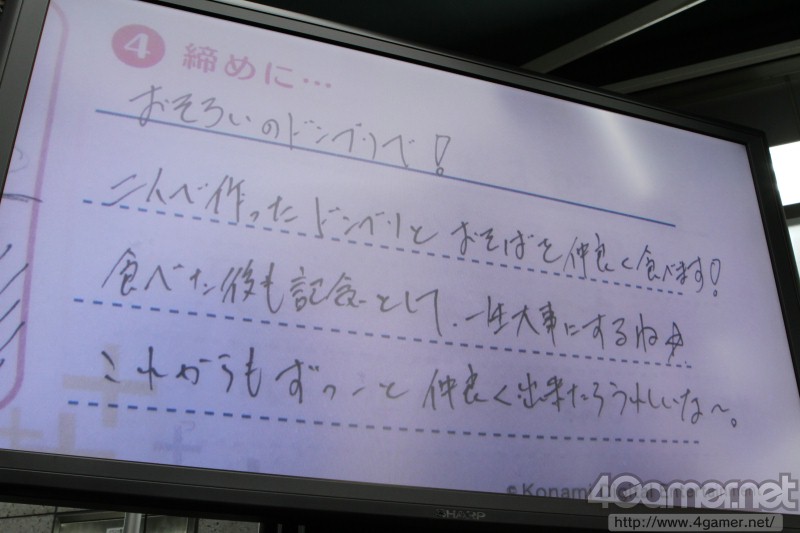 4 締めに…
おそろいのドンブリで!
二人で作ったドンブリとおそばを仲良く食べます!
食べた後も記念として、一生大事にするね☆
これからもずっーと仲良く出来たらうれしいな〜。
© Konami
4Gamer.net
http://www.4gamer.net/
SHARP